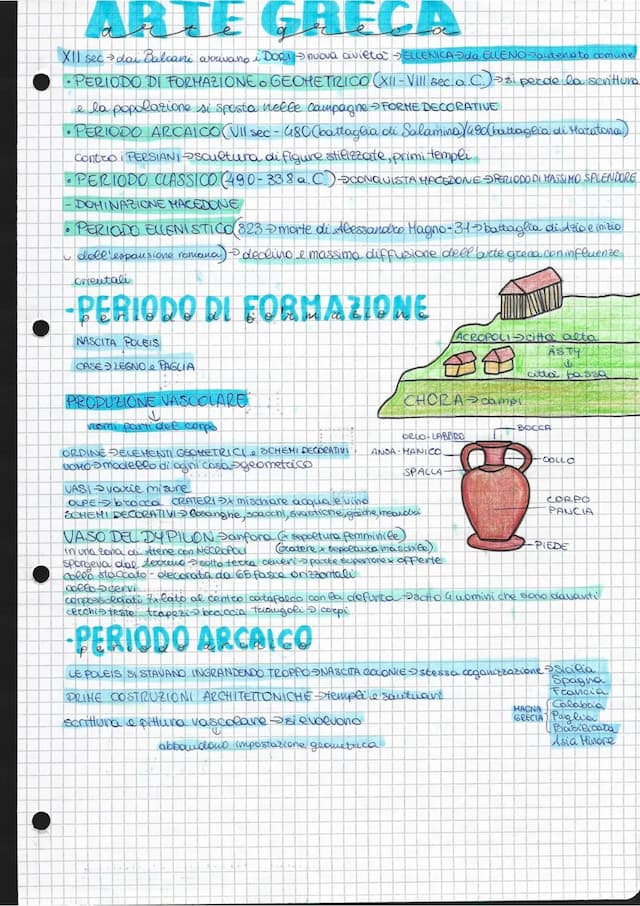 ARTE GRECA
arte greca
XII sec → dai Balcani arrivano i DORI → nuova civiltà → ELLENICA → da ELLENO → antenato comune
• PERIODO DI FORMAZIONE o GEOMETRICO (XII - VIII sec. a. C.) → si perde la scrittura
e la popolazione si sposta nelle campagne → FORME DECORATIVE
• PERIODO ARCAICO (VII sec - 480 (battaglia di Salamina)/490 (battaglia di Maratona)
contro i PERSIANI → scultura di figure stilizzate, primi templi
• PERIODO CLASSICO (490 - 338 a. C.) → CONQUISTA MACEDONE → PERIODO DI MASSIMO SPLENDORE
- DOMINAZIONE MACEDONE
• PERIODO ELLENISTICO (323 → morte di Alessandro Magno - 31 → battaglia di Azio e inizio
dell'espansione romana) → declino e massima diffusione dell'arte greca con influenze
orientali
- PERIODO DI FORMAZIONE
periodo di formazione
NASCITA POLEIS
CASE → LEGNO e PAGLIA
ACROPOLI → città alta
ASTY
↓
città bassa
CHORA → campi
PRODUZIONE VASCOLARE
↓
nomi parti del corpo
BOCCA
ORLO - LABBRO
ANSA - MANICO
COLLO
SPALLA
CORPO
PANCIA
PIEDE
ORDINE → ELEMENTI GEOMETRICI e SCHEMI DECORATIVI
UOMO → modello di ogni cosa → geometrico
VASI → varie misure
OLPE → brocca CRATERI → x mischiare acqua e vino
SCHEMI DECORATIVI → losanghe, scacchi, svastiche, greche, meandri
VASO DEL DYPILON → anfora (x sepoltura femminile)
in una zona di Atene con NECROPOLI (cratere x sepoltura maschile)
sporgeva dal terreno → sotto terra ceneri → parte superiore x offerte
collo staccato - decorata da 65 fasce orizzontali
collo → cervi
corpo → defunti 7 x lato al centro catafalco con la defunta → sotto 4 uomini che sono davanti
cerchi → teste trapezi → braccia triangoli → corpi
- PERIODO ARCAICO
periodo arcaico
LE POLEIS SI STAVANO INGRANDENDO TROPPO → NASCITA COLONIE → stessa organizzazione → Sicilia
Spagna
Francia
PRIME COSTRUZIONI ARCHITETTONICHE → templi e santuari
MAGNA GRECIA
Calabria
Puglia
Basilicata
Asia Minore
scrittura e pittura vascolare → si evolvono
↓
abbandono impostazione geometrica